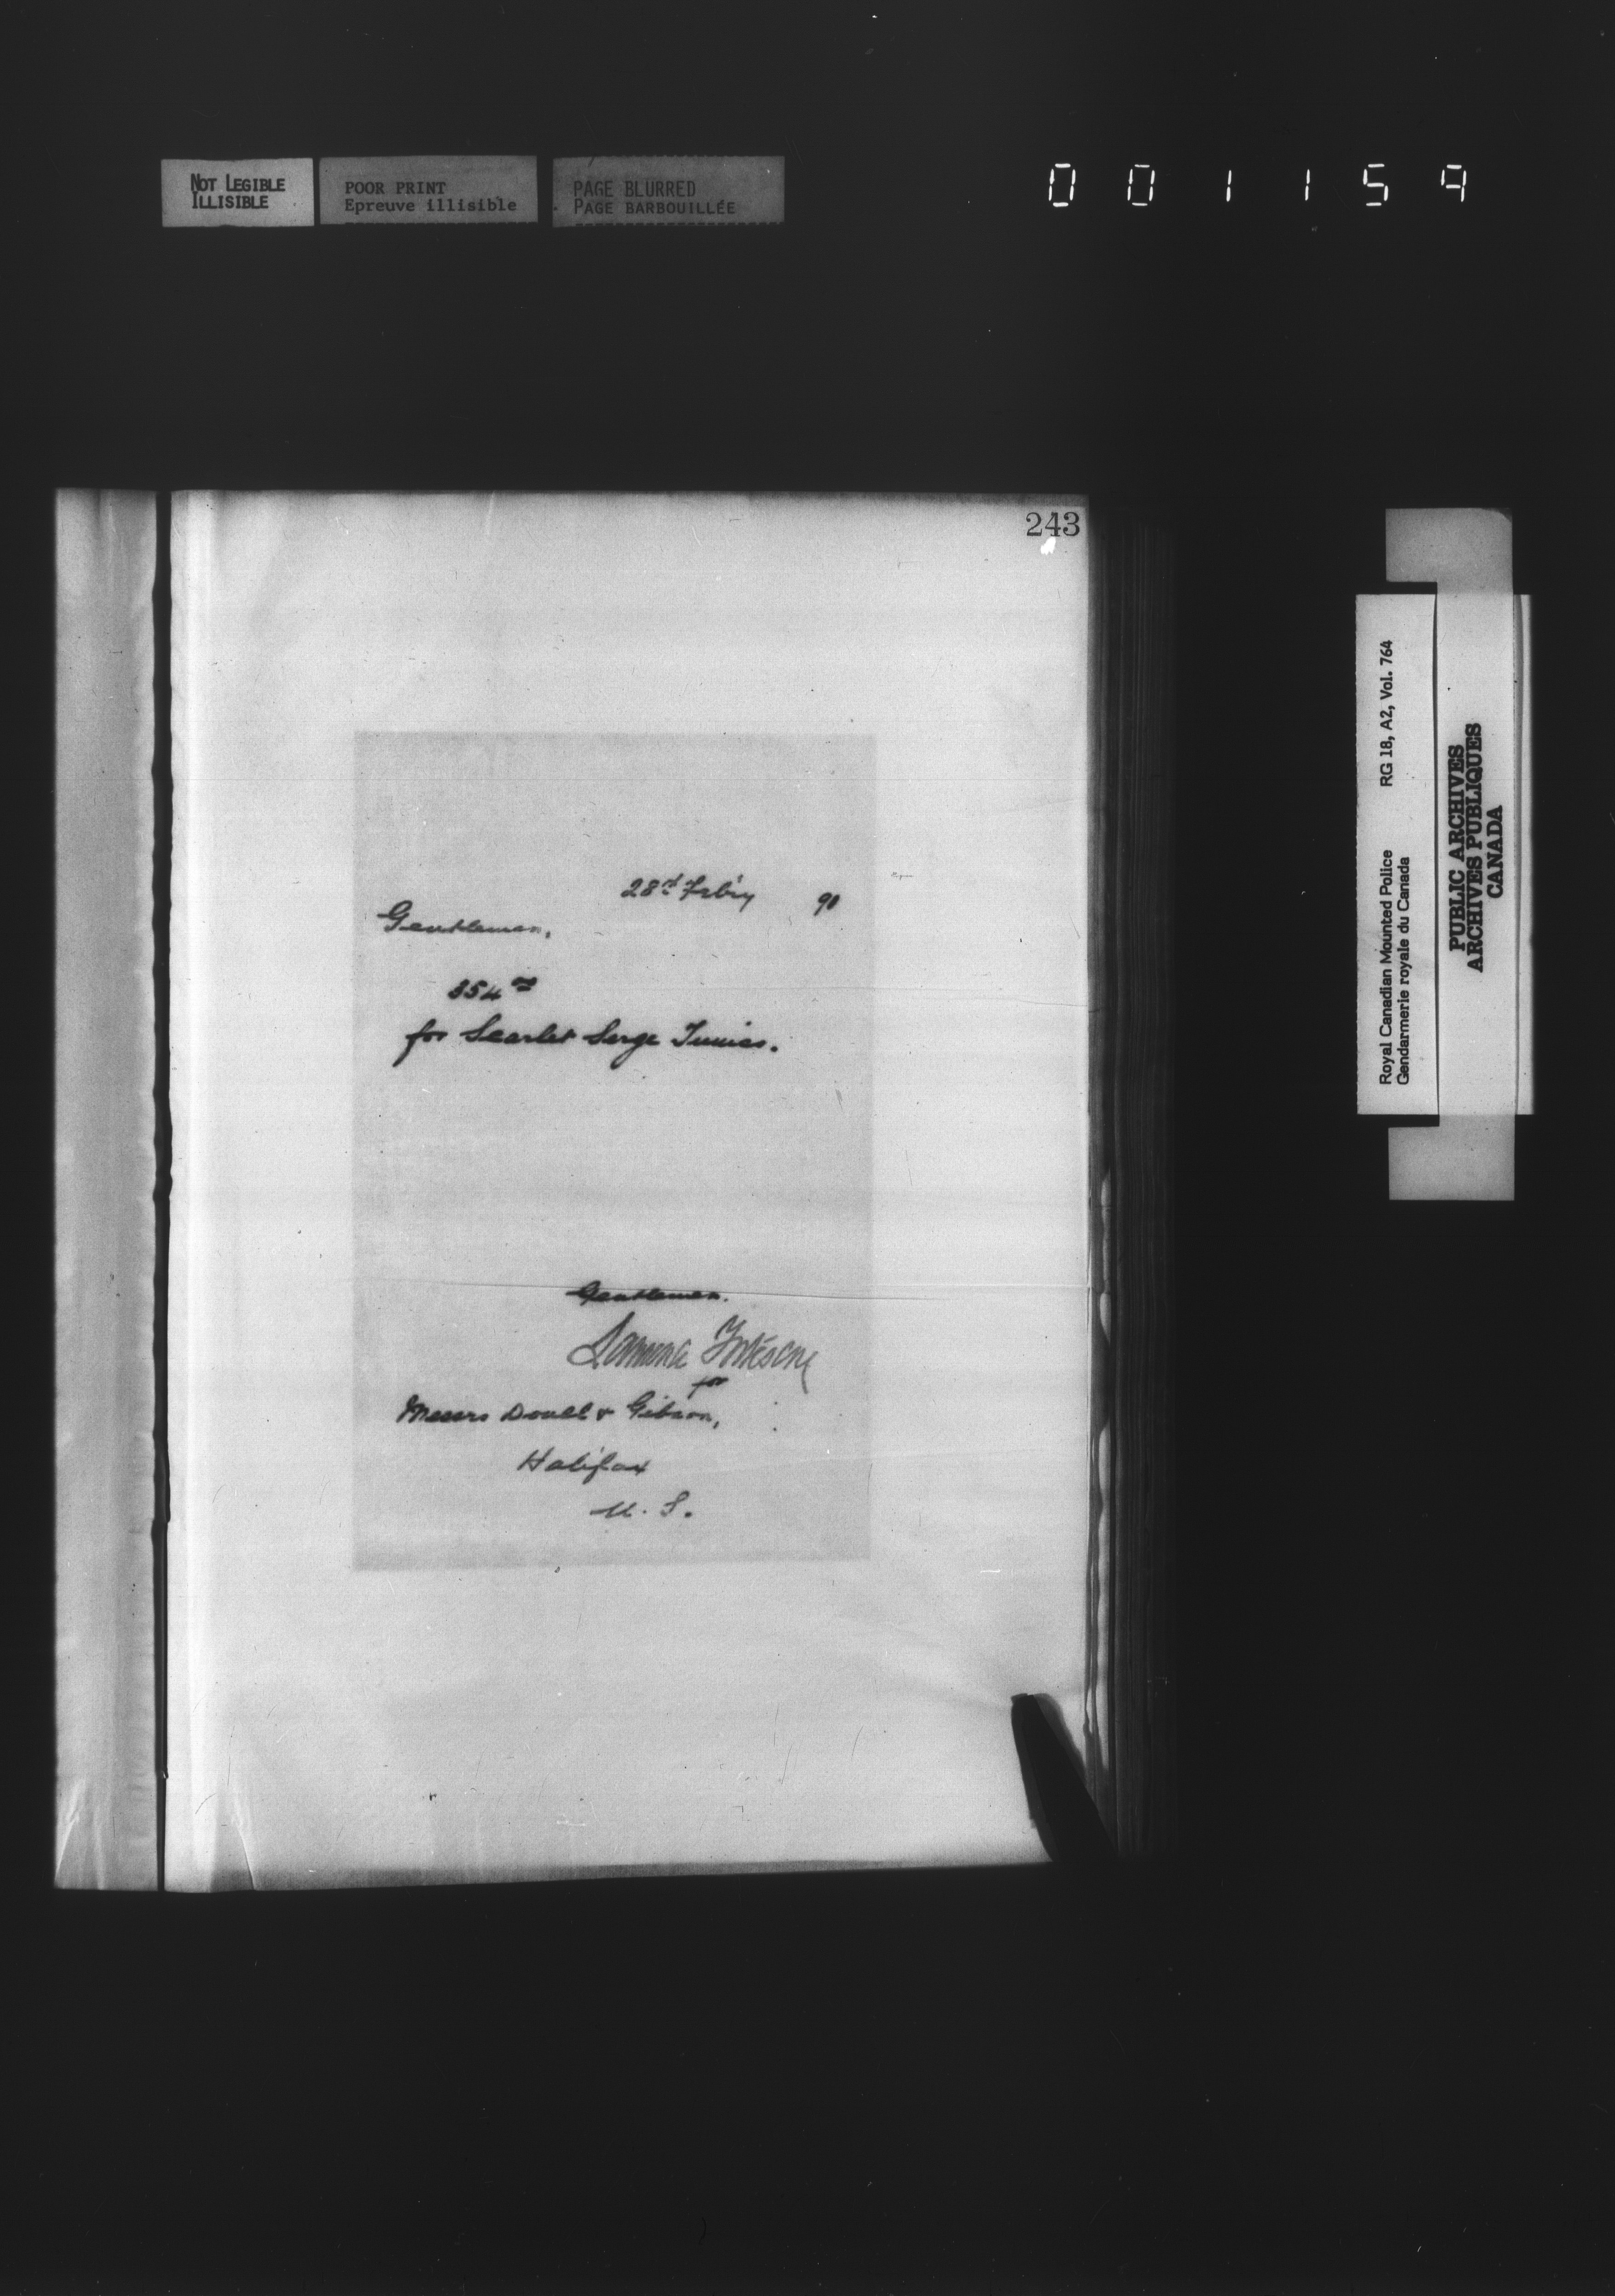 NOT LEGIBLE
ILLISIBLE
POOR PRINT
Epreuve illisible
PAGE BLURRED
PAGE BARBOUILLÉE
001159
243
28th Feb'y 90
Gentlemen,
354 00
for Scarlet Serge Tunics.
Gentlemen.
for
Messrs Doull & Gibson,
Halifax
N. S.
Royal Canadian Mounted Police RG 18, A2, Vol. 764
Gendarmerie royale du Canada
PUBLIC ARCHIVES
ARCHIVES PUBLIQUES
CANADA